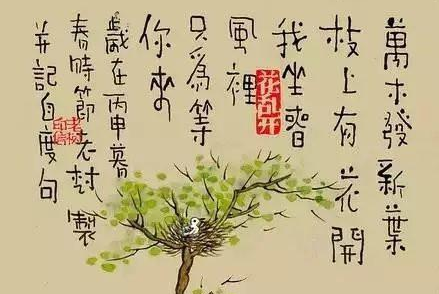 萬木發新葉
枝上有花開
我坐春
風裡
只為等
你來
歲在丙申暮
春時節老樹製
并記自度句
花乱开